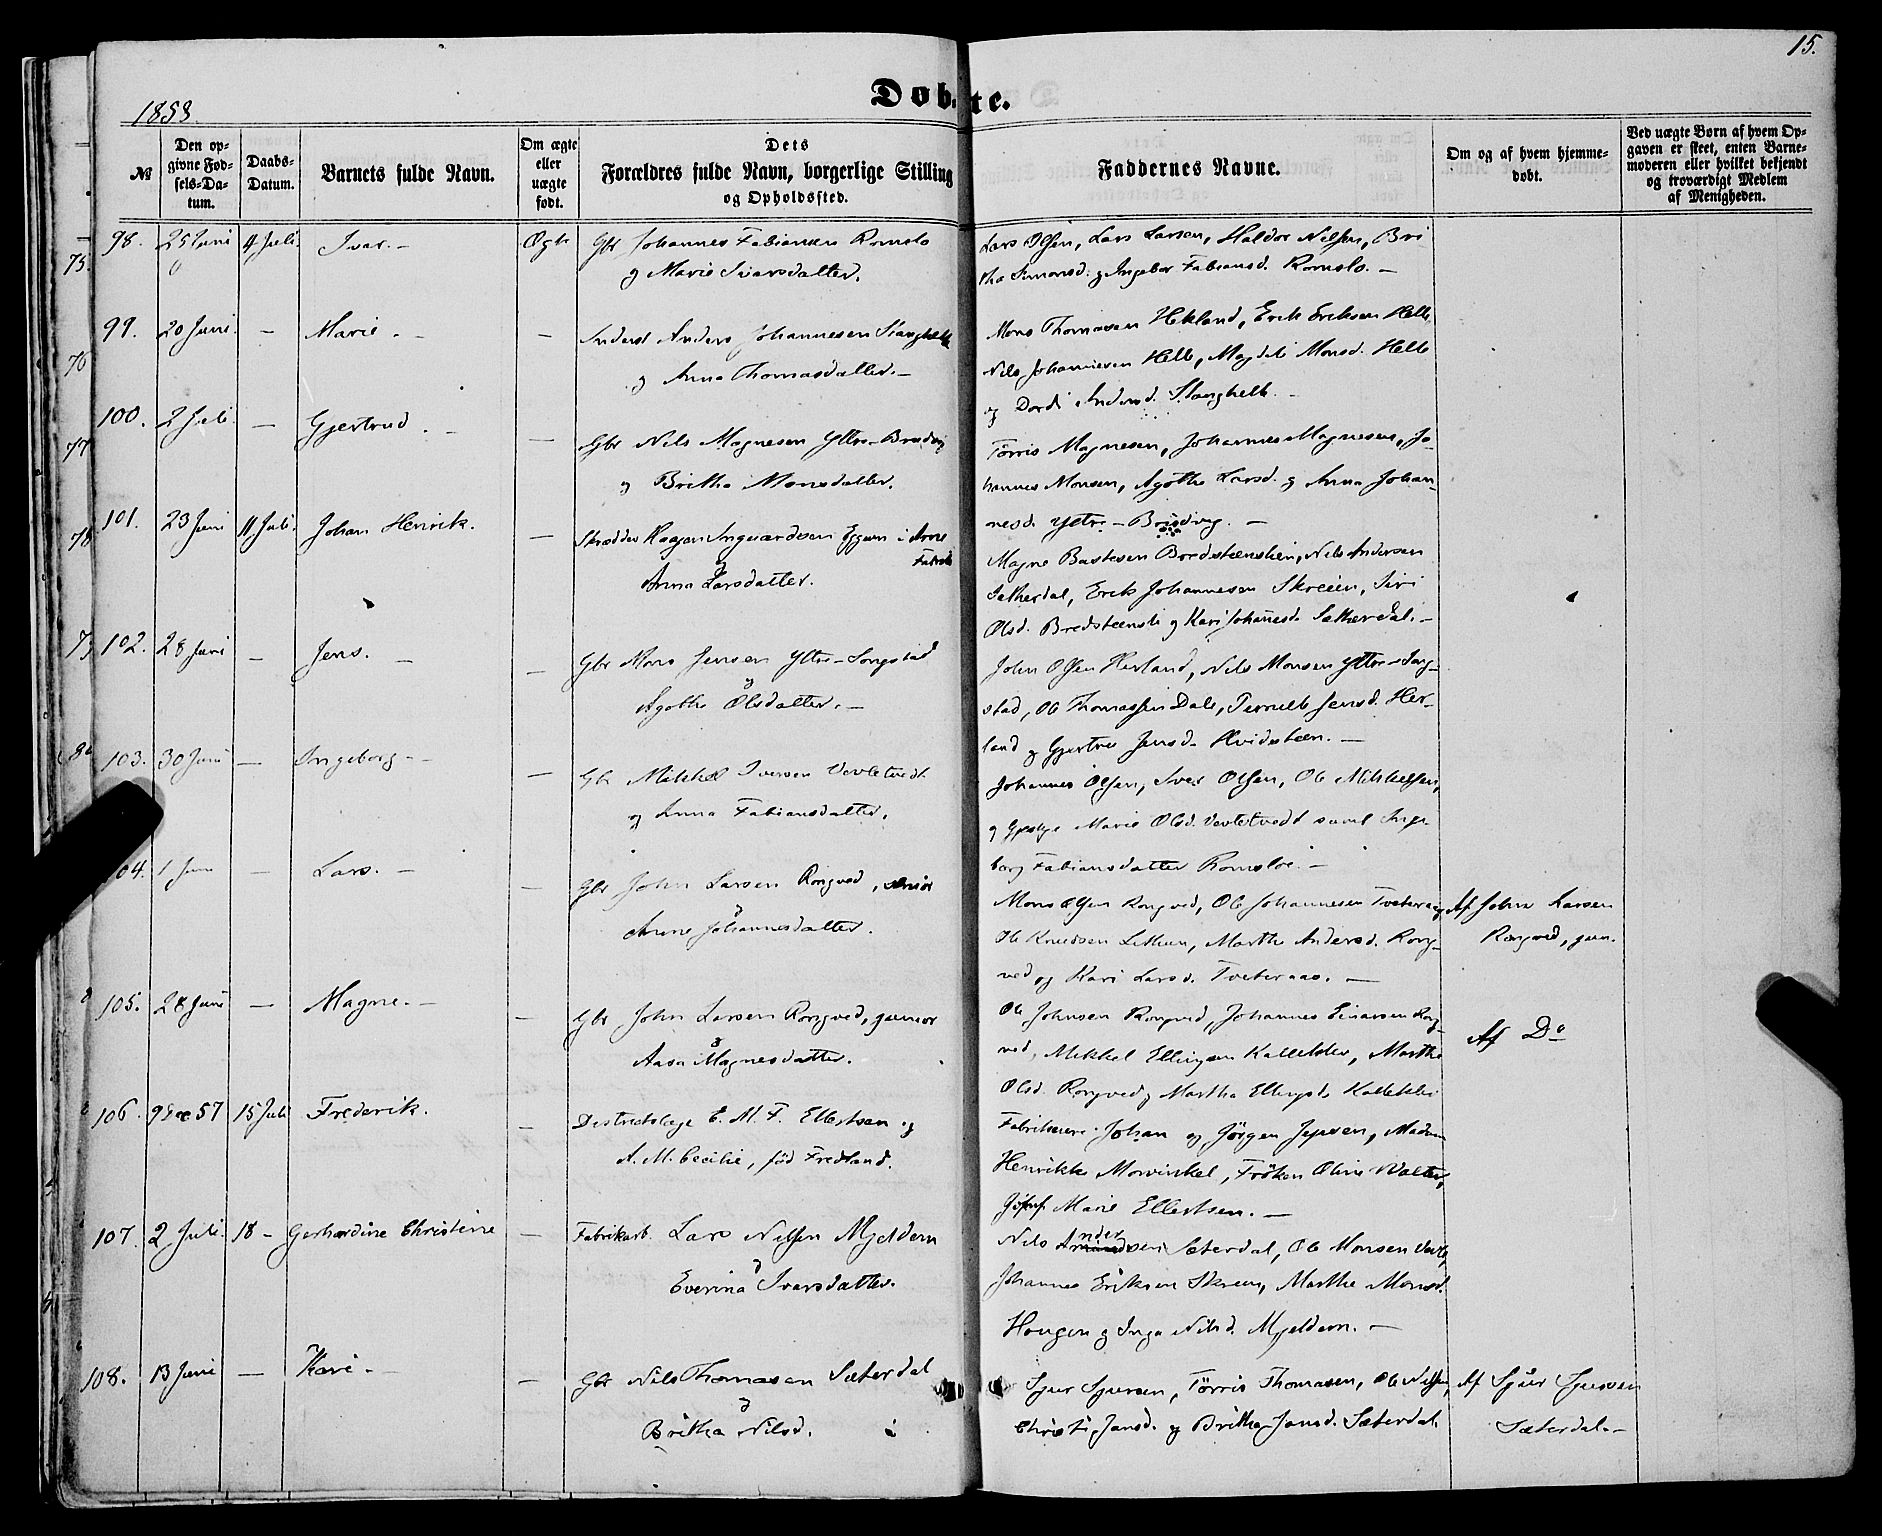 15.
Døbte.
1858.
№
Den opgivne Fødsels-Datum.
Daabs-Datum.
Barnets fulde Navn.
Om ægte eller uægte født.
Dets Forældres fulde Navn, borgerlige Stilling og Opholdssted.
Faddernes Navne.
Om og af hvem hjemmedøbt.
Ved uægte Børn af hvem Opgaven er skeet, enten Barnemoderen eller hvilket bekjendt og troværdigt Medlem af Menigheden.
98. 25 Juni 4 Juli Ivar. – Ægte Gbr Johannes Fabiansen Romslo
og Marie Ivarsdatter.
Lars Olsen, Lars Larsen, Haldor Nilsen, Bri
tha Simonsd. og Ingebor Fabiansd. Romslo. –
99. 20 Juni – Marie. – – Inderst Anders Johannesen Stanghelle
og Anna Thomasdatter. –
Mons Thomasen Hekland, Erik Eriksen Helle
Nils Johannesen Helle, Magdeli Monsd. Helle
og Dordi Andersd. Stanghelle. –
100. 2 Juli – Gjertrud. – – Gbr Nils Magnesen Yttre-Bredvig
og Britha Monsdatter.
Tørris Magnesen, Johannes Magnesen, Jo-
hannes Monsen, Agathe Larsd. og Anna Johan-
nesd. Yttre-Bredvig. –
101. 23 Juni 11 Juli. Johan Henrik. – Skrædder Haagen Ingvardsen i Arne
Fabrik
og
Anna Larsdatter.
Magne Bastesen Bredsteenslien, Nils Andersen
Sætherdal, Erik Johannesen Skreien, Siri
Olsd. Bredsteensli og Kari Johannesd. Sætherdal. –
102. 28 Juni – Jens. – – Gbr Mons Jensen Yttre-Songstad
og
Agathe Olsdatter. –
John Olsen Herland, Nils Monsen Yttre-Song-
stad, Ole Thomassen Dale, Pernille Jensd. Her-
land og Gjertru Jensd. Hvidsteen. –
103. 30 Juni – Ingeborg. – – Gbr Mikkel Iversen Vevletvedt
og Anna Fabiansdatter.
Johannes Olsen, Iver Olsen, Ole Mikkelsen,
og Marie Olsd. Vevletvedt samt Inge-
borg Fabiansdatter Romsloe. –
104. 1 – Lars. – – Gbr John Larsen Rongved, senior
og
Anne Johannesdatter.
Mons Olsen Rongved, Ole Johannesen Tveteraas
Ole Knudsen Lethun, Marthe Andersd. Rong-
ved og Kari Larsd. Tveteraas. –
Af John Larsen
Rongved, jun.
105. 28 Juni – Magne. – – Gbr John Larsen Rongved, junior
og
Aasa Magnesdatter.
Ole Johnsen Rongved, Johannes Einarsen Rong-
ved, Mikkel Ellingsen Kallekleiv, Marthe
Olsd. Rongved og Martha Ellingsd. Kallekleiv
Af Do
106. 9 Dec 57 15 Juli Frederik. – Destrictslæge E. M. F. Ellertsen og
A. M. Cecilie, fød Fredland.
Fabrikeiere Johan og Jørgen Jepsen, Madam
Henrikke Mowinkel, Frøken Oline Walter,
Marie Ellertsen. –
107. 2 Juli. 18 – Gerhardine Christine – Fabrikarb. Lars Nilsen Mjeldem
og
Everina Ivarsdatter.
Nils Andersen Sæterdal, Ole Monsen
Johannes Eriksen Skreien, Marthe Monsd.
Hougen og Inga Nilsd. Mjeldem. –
108. 13 Juni – Kari – – Gbr Nils Thomasen Sæterdal
og
Britha Nilsd.
Sjur Sjursen, Tørris Thomasen, Ole Nilsen,
Christi Jansd. og Britha Jansd. Sæterdal.
Af Sjur Sjursen
Sæterdal. –
75.
76
77
78
79